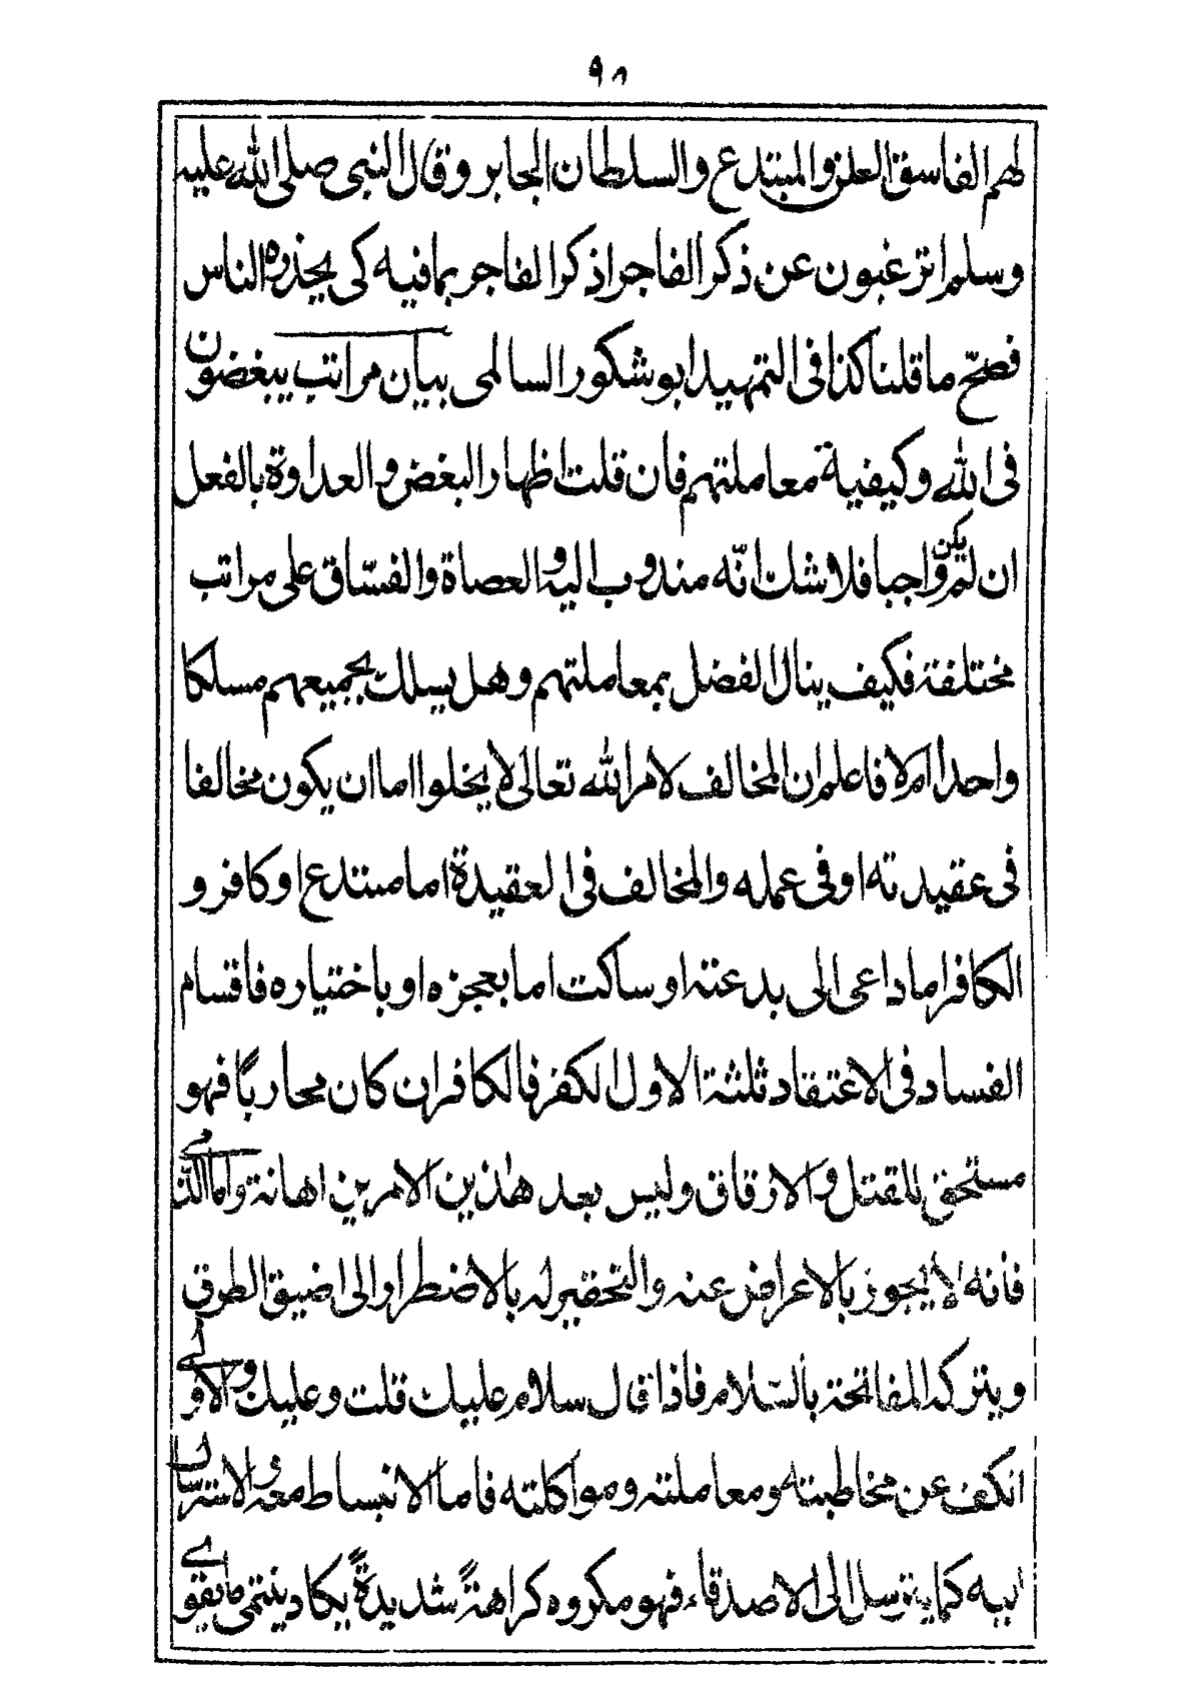 ٩٨
لهم الفاسق العلن والمبتدع والسلطان الجابر وقال النبى صلى الله عليه
وسلم اترغبون عن ذكر الفاجر اذكر الفاجر بما فيه كى يحذره الناس
فصحّ ما قلنا كذا فى التمهيد ابو شكور السالمى بيان مراتب يبغضون
فى الله وكيفية معاملتهم فان قلت اظهار البغض والعداوة بالفعل
ان لم يكن واجبا فلا شك انّه مندوب اليه والعصاة والفسّاق على مراتب
مختلفة فكيف ينال الفضل بمعاملتهم وهل يسلك بجميعهم مسلكا
واحدا ام لا فاعلم ان المخالف لامر الله تعالى لا يخلوا اما ان يكون مخالفا
فى عقيدته او فى عمله والمخالف فى العقيدة اما مبتدع او كافر و
الكافر اما داعى الى بدعته او ساكت اما بعجزه او باختياره فاقسام
الفساد فى الاعتقاد ثلثة الاول الكفر فالكافر ان كان محاربًا فهو
مستحق للقتل والارقاق وليس بعد هاذين الامرين اهانة واما الذمى
فانه لا يجوز بالاعراض عنه والتحقير له بالاضطرار الى اضيق الطرق
وبترك المفاتحة بالسّلام فاذا قال سلام عليك قلت وعليك والاولى
انكف عن مخاطبته ومعاملته ومواكلته فاما الانبساط معه والاسترسال
اليه كما يترسل الى الاصدقاء فهو مكروه كراهةً شديدةً يكاد ينتهى ما يقوى